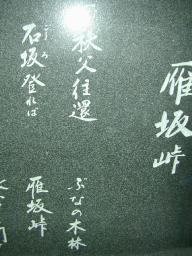 雁坂峠
秩父往還
ぶなの木林
石坂登れば
雁坂峠